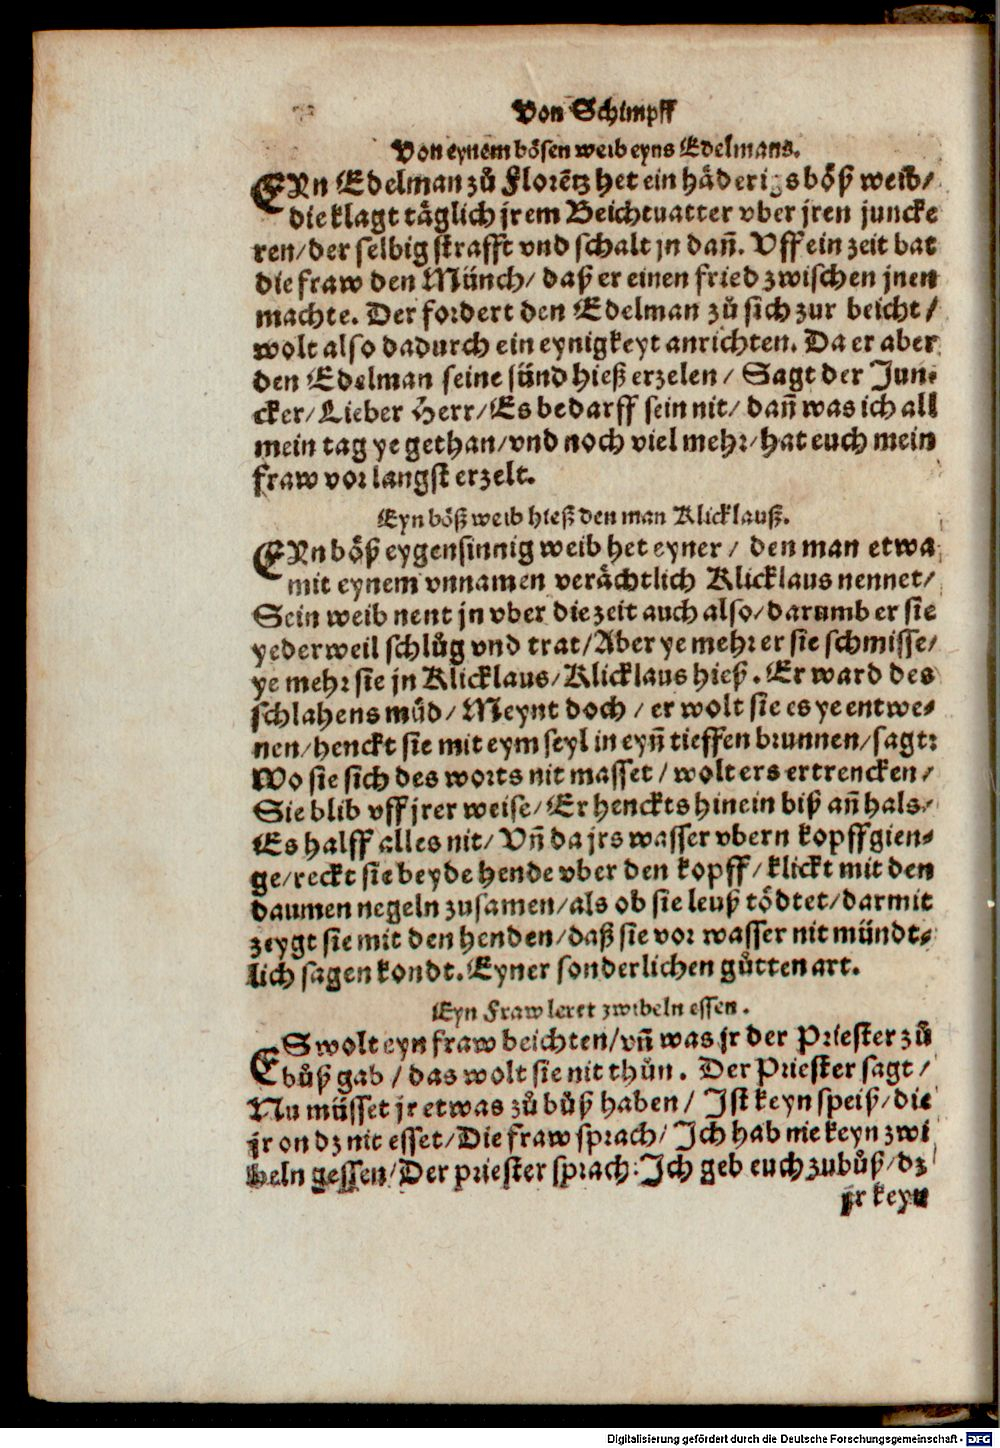 Von Schimpff
Von eynem bösen weib eyns Edelmans.
EYn Edelman zů Florētz het ein häderigs böß weib/
die klagt täglich jrem Beichtuatter vber jren juncke
ren/der selbig strafft vnd schalt jn dañ. Vff ein zeit bat
die fraw den Münch/ daß er einen fried zwischen jnen
machte. Der fordert den Edelman zů sich zur beicht/
wolt also dadurch ein eynigkeyt anrichten. Da er aber
den Edelman seine sünd hieß erzelen/ Sagt der Jun⸗
cker/Lieber Herr/Es bedarff sein nit/ dañ was ich all
mein tag ye gethan/vnd noch viel mehr/hat euch mein
fraw vor langst erzelt.
Eyn böß weib hieß den man Klicklauß.
EYn böß eygensinnig weib het eyner/ den man etwa
mit eynem vnnamen verächtlich Klicklaus nennet/
Sein weib nent jn vber die zeit auch also/darumb er sie
yederweil schlůg vnd trat/Aber ye mehr er sie schmisse/
ye mehr sie jn Klicklaus/Klicklaus hieß. Er ward des
schlahens můd/ Meynt doch/ er wolt sie es ye entwe⸗
nen/henckt sie mit eym seyl in eyñ tieffen brunnen/sagt:
Wo sie sich des worts nit masset/ wolt ers ertrencken/
Sie blib vff jrer weise/ Er henckts hinein biß añ hals/
Es halff alles nit/ Vñ da jrs wasser vbern kopff gien⸗
ge/reckt sie beyde hende vber den kopff/ klickt mit den
daumen negeln zusamen/als ob sie leuß tödtet/darmit
zeygt sie mit den henden/daß sie vor wasser nit mündt⸗
lich sagen kondt. Eyner sonderlichen gůtten art.
Eyn Fraw leret zwibeln essen.
ES wolt eyn fraw beichten/vñ was jr der Priester zů
bůß gab/das wolt sie nit thůn. Der Priester sagt/
Nu müsset jr etwas zů bůß haben/ Jst keyn speiß/die
jr on dz nit esset/Die fraw sprach/ Jch hab nie keyn zwi
beln gessen/Der priester sprach: Jch geb euch zu bůß/dz
jr keyn
Digitalisierung gefördert durch die Deutsche Forschungsgemeinschaft - DFG